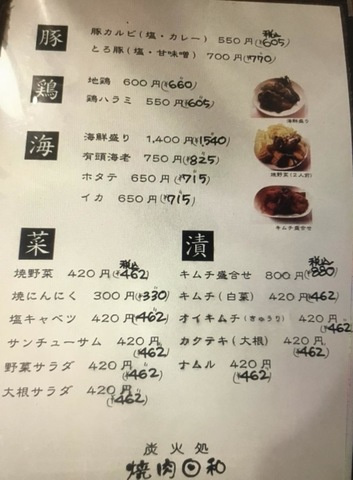 豚
税込
豚カルビ(塩・カレー) 550円(¥605)
とろ豚(塩・甘味噌) 700円(¥770)
鶏
地鶏 600円(¥660)
鶏ハラミ 550円(¥605)
海
海鮮盛り 1,400円(¥1540)
有頭海老 750円(¥825)
ホタテ 650円(¥715)
イカ 650円(¥715)
海鮮盛り
焼野菜(2人前)
キムチ盛合せ
菜
税込
焼野菜 420円(¥462)
焼にんにく 300円(¥330)
塩キャベツ 420円(¥462)
サンチューサム 420円(¥462)
野菜サラダ 420円(¥462)
大根サラダ 420円(¥462)
漬
税込
キムチ盛合せ 800円(¥880)
キムチ(白菜) 420円(¥462)
オイキムチ(きゅうり) 420円(¥462)
カクテキ(大根) 420円(¥462)
ナムル 420円(¥462)
炭火処
焼肉日和